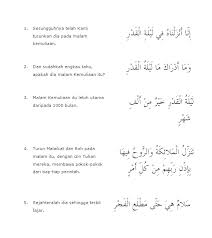 1. Sesungguhnya telah Kami
turunkan dia pada malam
kemuliaan.
إِنَّا أَنْزَلْنَاهُ فِي لَيْلَةِ الْقَدْرِ
2. Dan sudahkah engkau tahu,
apakah dia malam Kemuliaan itu?
وَمَا أَدْرَاكَ مَا لَيْلَةُ الْقَدْرِ
3. Malam Kemuliaan itu lebih utama
daripada 1000 bulan.
لَيْلَةُ الْقَدْرِ خَيْرٌ مِنْ أَلْفِ
شَهْرٍ
4. Turun Malaikat dan Roh pada
malam itu, dengan izin Tuhan
mereka, membawa pokok-pokok
tiap-tiap perintah.
تَنَزَّلُ الْمَلَائِكَةُ وَالرُّوحُ فِيهَا
بِإِذْنِ رَبِّهِمْ مِنْ كُلِّ أَمْرٍ
5. Sejahteralah dia sehingga terbit
fajar.
سَلَامٌ هِيَ حَتَّى مَطْلَعِ الْفَجْرِ